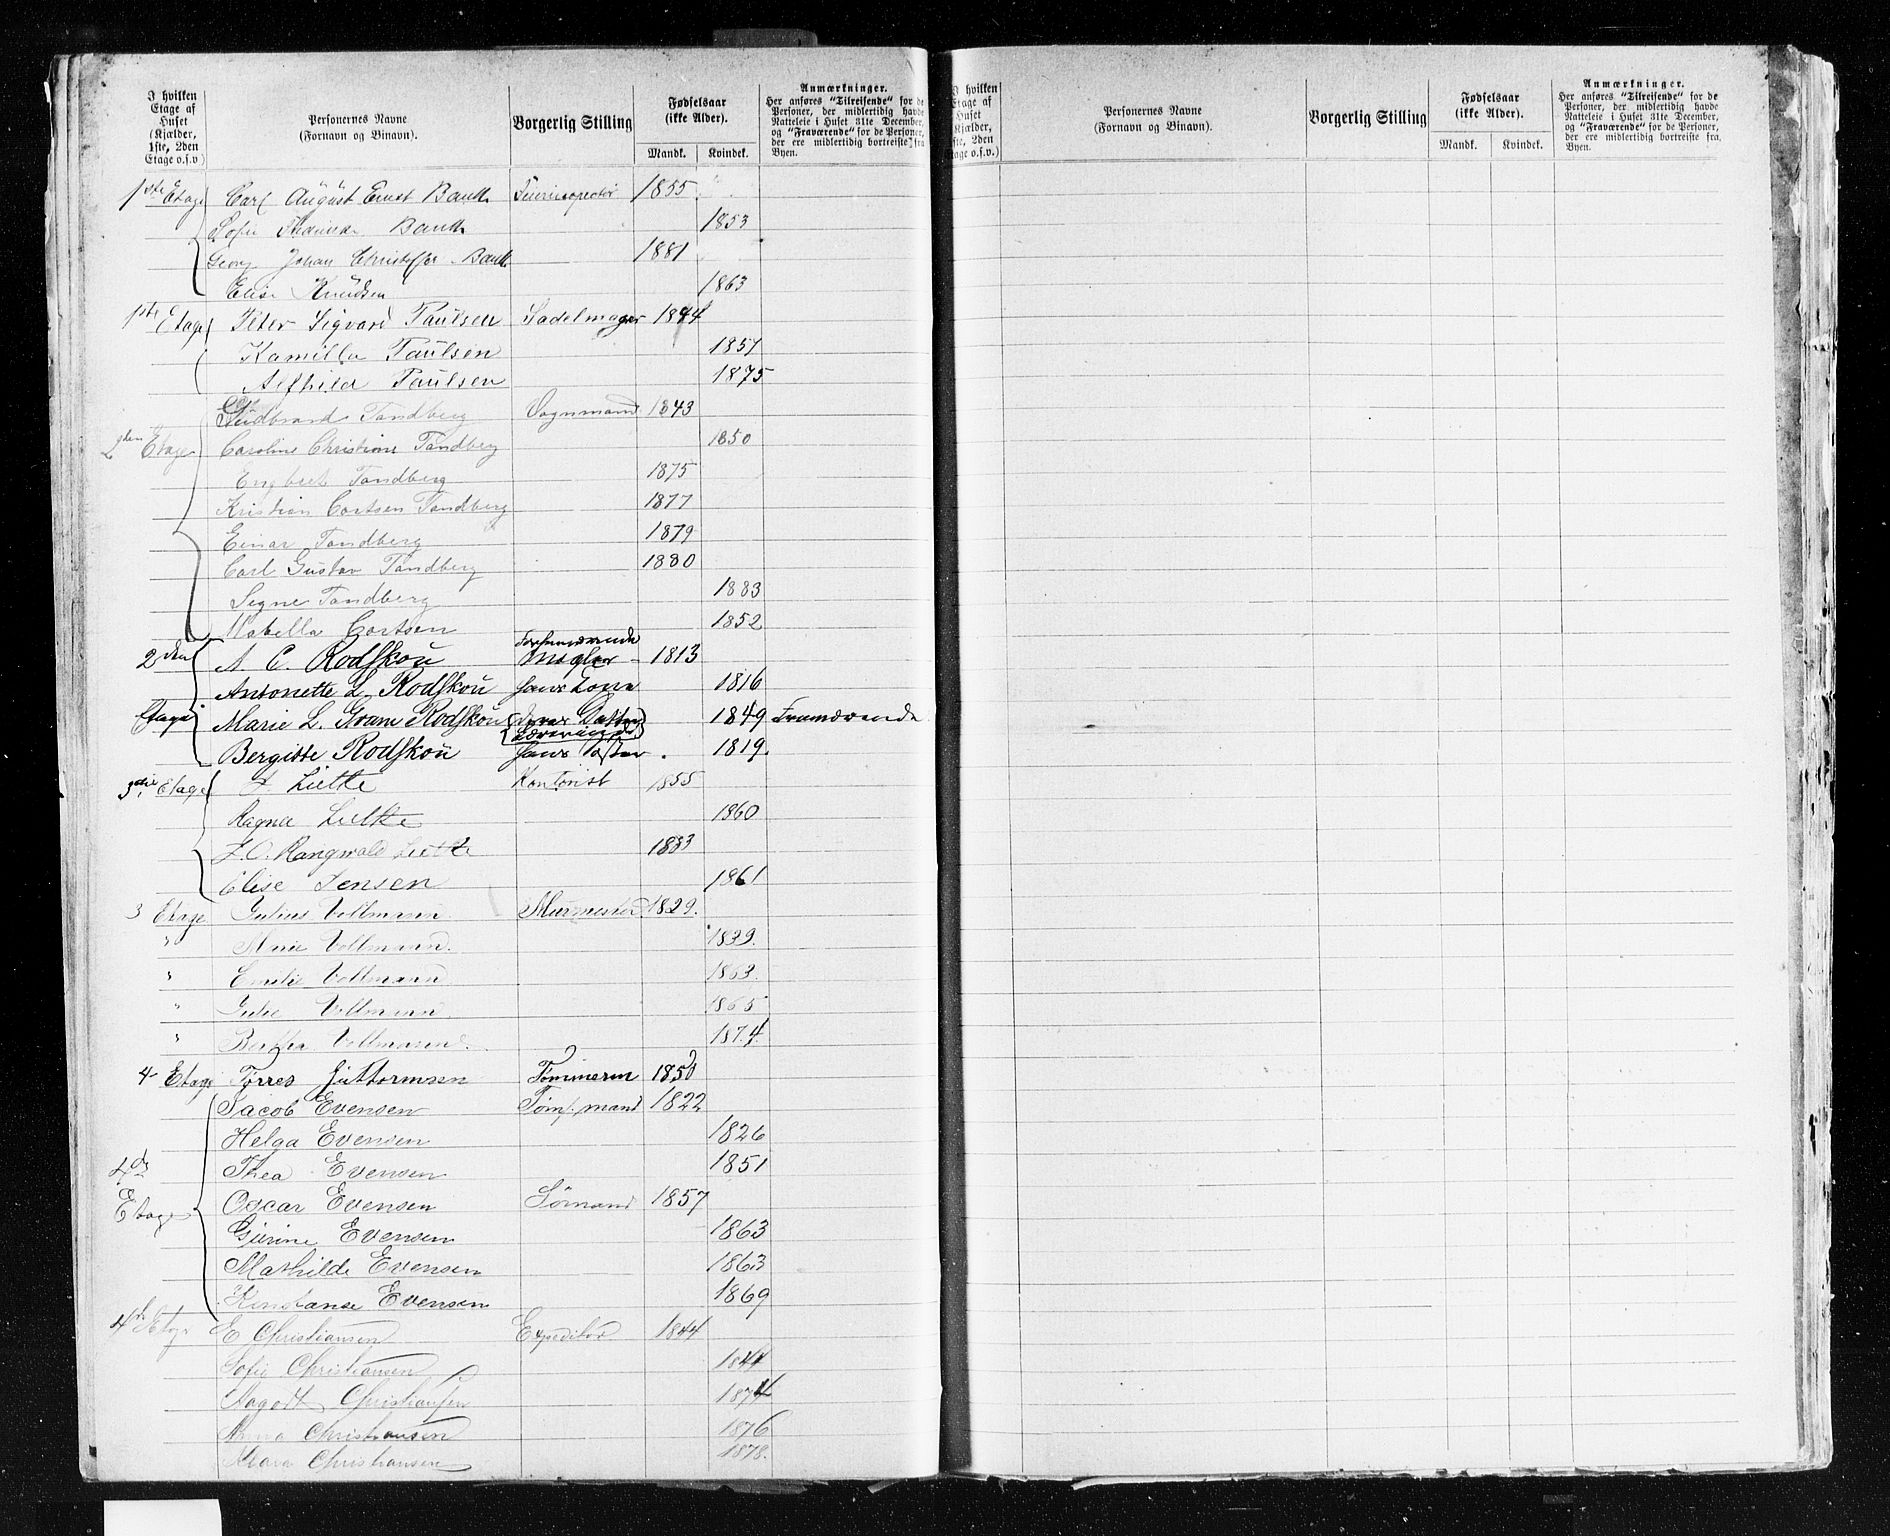 I hvilken Etage af Huset (Kjælder, 1ste, 2den Etage o.s.v) | Personernes Navne (Fornavn og Binavn). | Borgerlig Stilling | Fødselsaar (ikke Alder). Mandk. Kvindek. | Anmærkninger. Her anføres "Tilreisende" for de Personer, der midlertidig havde Natteleie i Huset 31te December, og "Fraværende" for de Personer, der ere midlertidig bortreiste fra Byen.
1ste Etage Carl August Ernst Bauth 1855
Sofie Bauth 1853
Georg Johan Christoffer Bauth 1881
Elise Knudsen 1863
1ste Etage Peter Sigvard Paulsen Sadelmager 1844
Kamilla Paulsen 1851
Alfhild Paulsen 1875
Gudbrand Tandberg Vognmand 1843
2den Etage Caroline Christine Tandberg 1850
Engbret Tandberg 1875
Kristian Cortsen Tandberg 1877
Einar Tandberg 1879
Carl Gustav Tandberg 1880
Signe Tandberg 1883
Isabella Cortsen 1852
2den A. C. Rodskou Forhenværende Mægler 1813
Antonette L. Rodskou hans Kone 1816
Etage Marie L. Gram Rodskou deres Datter Lærerinde 1849 Fraværende
Bergitte Rodskou hans Søster 1819.
3die Etage Lutke Kontorist 1855
Ragna Lutke 1860
J. O. Rangwald Lutke 1883
Elise Jensen 1861
3 Etage Julius Vollmann Murmester 1829.
" Marie Vollmann. 1839.
" Emilie Vollmann 1863.
" Julie Vollmann 1865
" Bertha Vollmann. 1874.
4 Etage Tørres Guttormsen Tømmerm 1850
Jacob Evensen Tømmand 1822
Helga Evensen 1826
4de Thea Evensen 1851
Etage Oscar Evensen Sømand 1857
Gurine Evensen 1863
Mathilde Evensen 1863
Konstanse Evensen 1869
4de Etage E Christiansen Expeditør 1844
Sofie Christiansen 1844
Aagodt Christiansen 1874
Anna Christiansen 1876
Mara Christiansen 1878.
I hvilken Etage af Huset (Kjælder, 1ste, 2den Etage o.s.v.) | Personernes Navne (Fornavn og Binavn). | Borgerlig Stilling | Fødselsaar (ikke Alder). Mandk. Kvindek. | Anmærkninger. Her anføres "Tilreisende" for de Personer, der midlertidig havde Natteleie i Huset 31te December, og "Fraværende" for de Personer, der ere midlertidig bortreiste fra Byen.